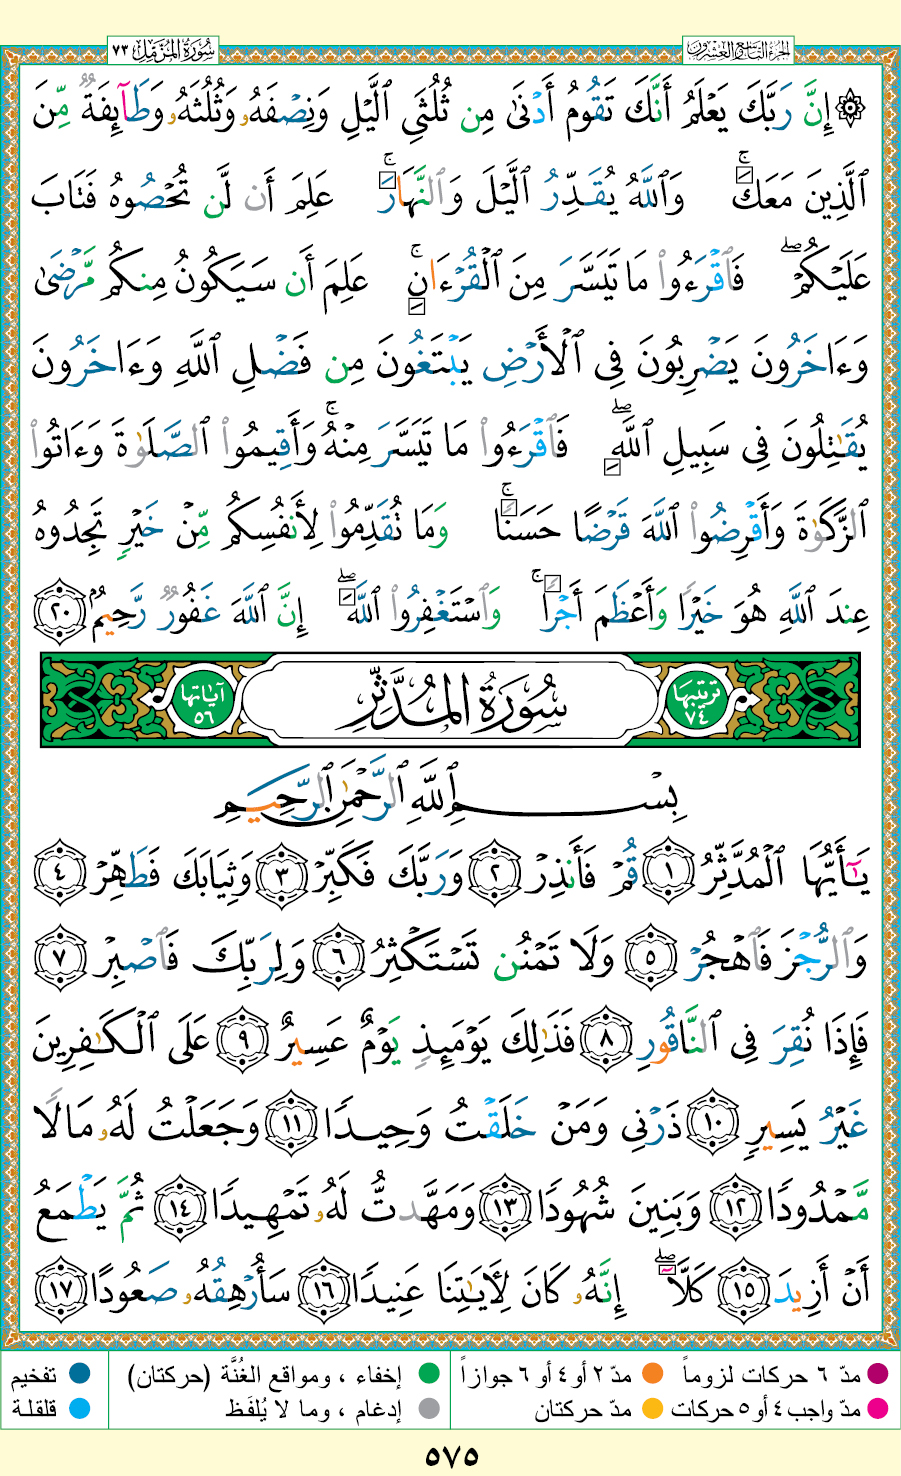 الجزء التاسع والعشرون
سُورَةُ المُزَّمِّل ٧٣
۞ إِنَّ رَبَّكَ يَعْلَمُ أَنَّكَ تَقُومُ أَدْنَىٰ مِن ثُلُثَيِ ٱلَّيْلِ وَنِصْفَهُۥ وَثُلُثَهُۥ وَطَآئِفَةٌ مِّنَ
ٱلَّذِينَ مَعَكَ ۚ وَٱللَّهُ يُقَدِّرُ ٱلَّيْلَ وَٱلنَّهَارَ ۚ عَلِمَ أَن لَّن تُحْصُوهُ فَتَابَ
عَلَيْكُمْ ۖ فَٱقْرَءُوا۟ مَا تَيَسَّرَ مِنَ ٱلْقُرْءَانِ ۚ عَلِمَ أَن سَيَكُونُ مِنكُم مَّرْضَىٰ
وَءَاخَرُونَ يَضْرِبُونَ فِى ٱلْأَرْضِ يَبْتَغُونَ مِن فَضْلِ ٱللَّهِ وَءَاخَرُونَ
يُقَـٰتِلُونَ فِى سَبِيلِ ٱللَّهِ ۖ فَٱقْرَءُوا۟ مَا تَيَسَّرَ مِنْهُ ۚ وَأَقِيمُوا۟ ٱلصَّلَوٰةَ وَءَاتُوا۟
ٱلزَّكَوٰةَ وَأَقْرِضُوا۟ ٱللَّهَ قَرْضًا حَسَنًا ۚ وَمَا تُقَدِّمُوا۟ لِأَنفُسِكُم مِّنْ خَيْرٍ تَجِدُوهُ
عِندَ ٱللَّهِ هُوَ خَيْرًا وَأَعْظَمَ أَجْرًا ۚ وَٱسْتَغْفِرُوا۟ ٱللَّهَ ۖ إِنَّ ٱللَّهَ غَفُورٌ رَّحِيمٌۢ ٢٠
ترتيبها ٧٤ سُورَةُ المُدَّثِّرِ آياتها ٥٦
بِسْمِ ٱللَّهِ ٱلرَّحْمَـٰنِ ٱلرَّحِيمِ
يَـٰٓأَيُّهَا ٱلْمُدَّثِّرُ ١ قُمْ فَأَنذِرْ ٢ وَرَبَّكَ فَكَبِّرْ ٣ وَثِيَابَكَ فَطَهِّرْ ٤
وَٱلرُّجْزَ فَٱهْجُرْ ٥ وَلَا تَمْنُن تَسْتَكْثِرُ ٦ وَلِرَبِّكَ فَٱصْبِرْ ٧
فَإِذَا نُقِرَ فِى ٱلنَّاقُورِ ٨ فَذَٰلِكَ يَوْمَئِذٍ يَوْمٌ عَسِيرٌ ٩ عَلَى ٱلْكَـٰفِرِينَ
غَيْرُ يَسِيرٍ ١٠ ذَرْنِى وَمَنْ خَلَقْتُ وَحِيدًا ١١ وَجَعَلْتُ لَهُۥ مَالًا
مَّمْدُودًا ١٢ وَبَنِينَ شُهُودًا ١٣ وَمَهَّدتُّ لَهُۥ تَمْهِيدًا ١٤ ثُمَّ يَطْمَعُ
أَنْ أَزِيدَ ١٥ كَلَّآ ۖ إِنَّهُۥ كَانَ لِـَٔايَـٰتِنَا عَنِيدًا ١٦ سَأُرْهِقُهُۥ صَعُودًا ١٧
مدّ ٦ حركات لزوماً مدّ ٢ أو ٤ أو ٦ جوازاً إخفاء ، ومواقع الغُنَّة (حركتان) تفخيم
مدّ واجب ٤ أو ٥ حركات مدّ حركتان إدغام ، وما لا يُلفَظ قلقلة
٥٧٥